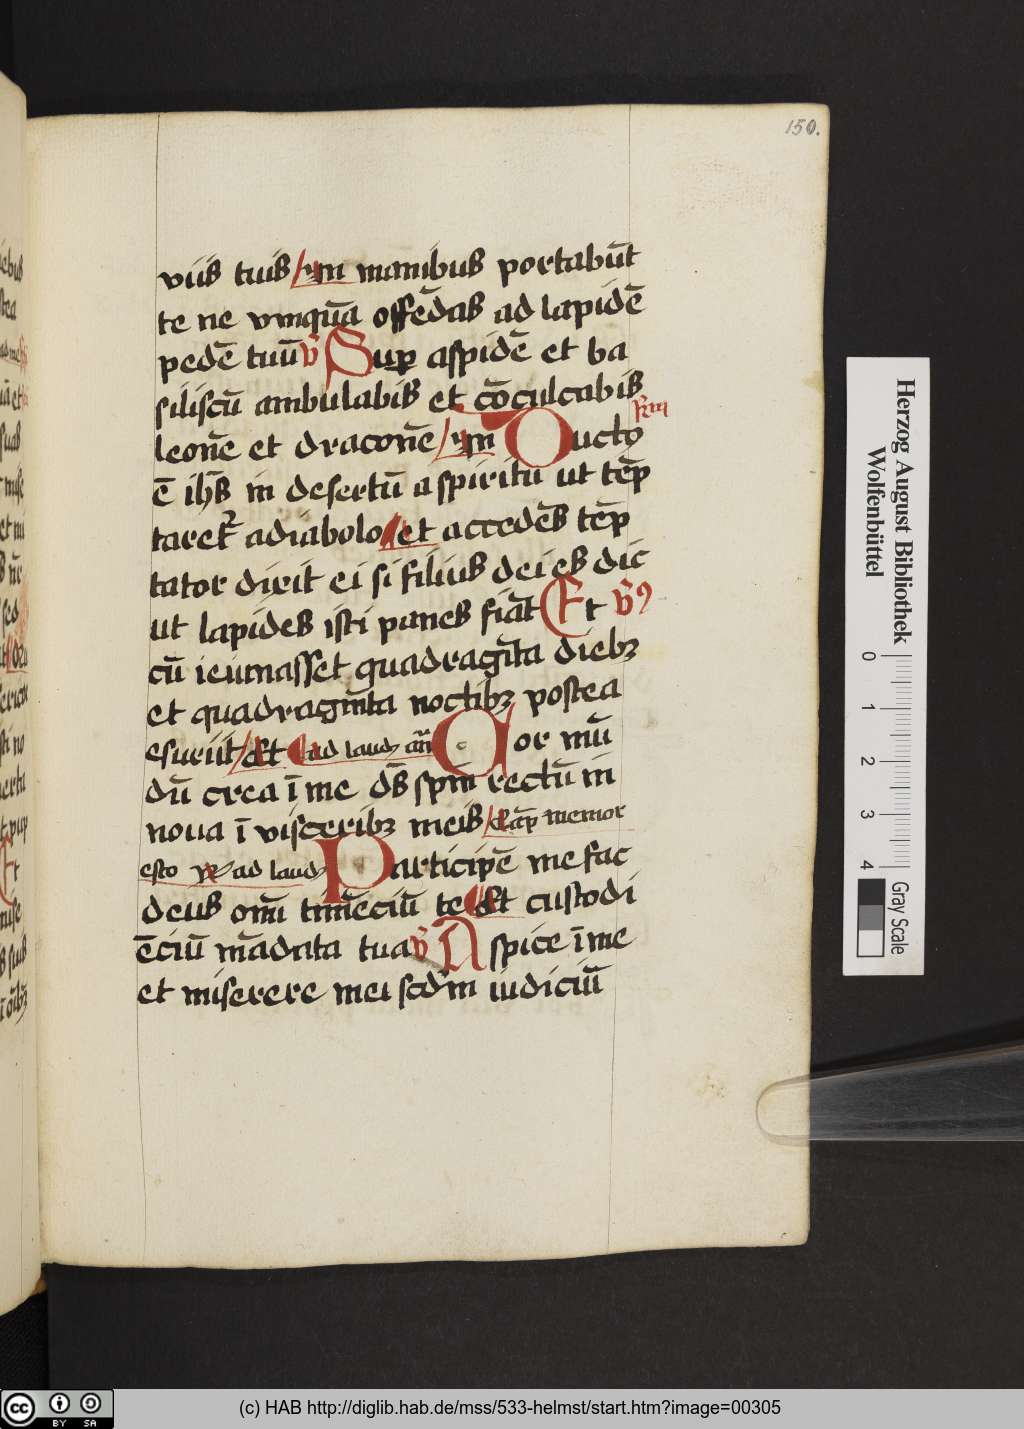 150.
viis tuis In manibus portabūt
te ne vmquā offēdas ad lapidē
pedē tuū v̄ Sup aspidē et ba
siliscū ambulabis et cōculcabis
leonē et draconē In Ductꝰ
ē ihs̄ in desertū a spiritu ut tēp
taret᷑ a diabolo et accedēs tēp
tator dixit ei si filius dei es dic
ut lapides isti panes fiāt Et v̄
cū ieiunasset quadragīta diebꝫ
et quadraginta noctibꝫ postea
esuriit Et ad laudꝫ an̄ Cor mū
dū crea ī me ds̄ spm̄ rectū in
noua ī visceribꝫ meis cap̄ memor
esto ad laudꝫ Particip̄e me fac
deus om̄i timēciū te Et custodi
ēciū mādata tua v̄ Aspice ī me
et miserere mei scdm iudiciū
Herzog August Bibliothek
Wolfenbüttel
0 1 2 3 4
Gray Scale
cc BY SA
(c) HAB http://diglib.hab.de/mss/533-helmst/start.htm?image=00305